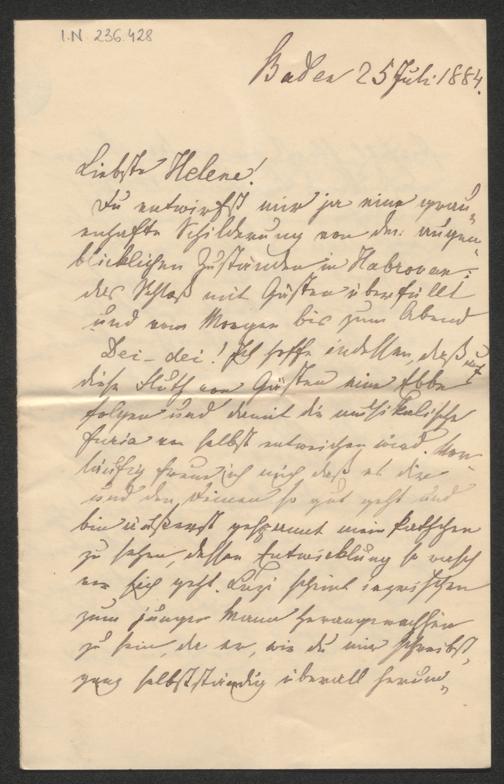 I.N 236.428
Baden 25 Juli 1884.
Liebste Helene!
Du entwirfst mir ja eine grau-
enhafte Schilderung von den augen-
blicklichen Zuständen in Habrovan:
das Schloß mit Gästen überfüllt
und vom Morgen bis zum Abend
Dei-dei! Ich hoffe indessen, daß auf
diese Fluth von Gästen eine Ebbe
folgen und damit die musikalische
Furia von selbst entweichen wird. Vor-
läufig freue ich mich daß es dir
und den Deinen so gut geht und
bin äußerst gespannt mein
zu sehen, dessen Entwicklung so rasch
vor sich geht. scheint inzwischen
zum jungen Mann herangewachsen
zu sein, da er, wie du mir schreibst,
ganz selbstständig überall herum-